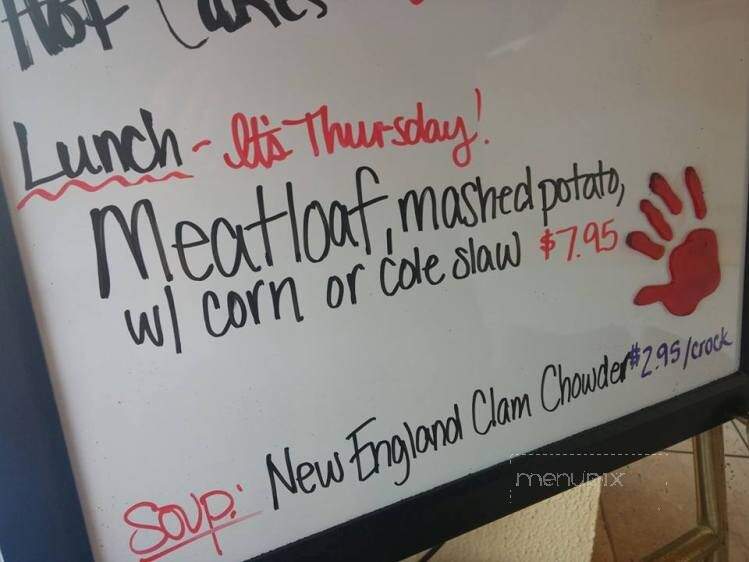 Hot Cakes
Lunch - It's Thursday!
Meatloaf, mashed potato,
w/ corn or cole slaw $7.95
Soup: New England Clam Chowder $2.95/crock
menupix